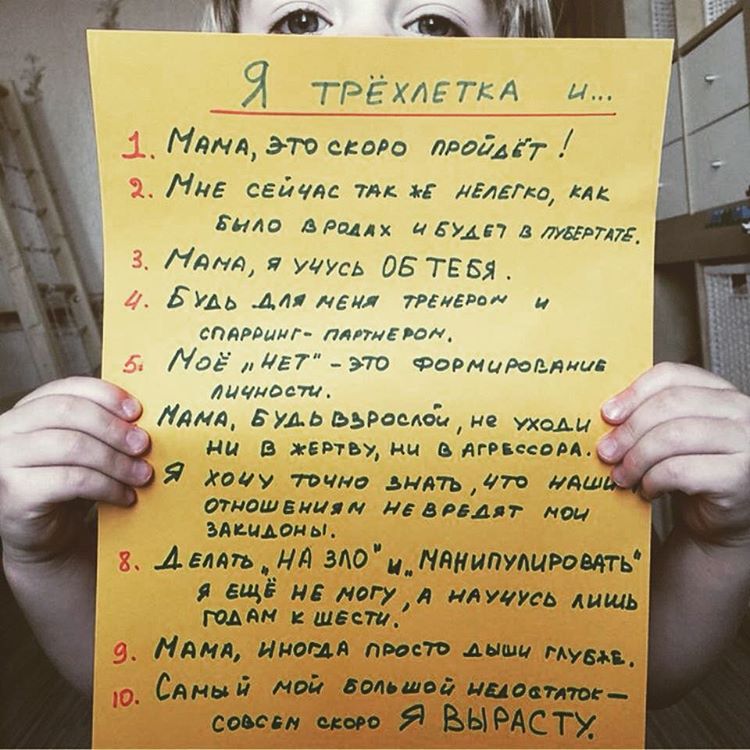 Я ТРЁХЛЕТКА И...
1. МАМА, ЭТО СКОРО ПРОЙДЁТ!
2. МНЕ СЕЙЧАС ТАК ЖЕ НЕЛЕГКО, КАК
БЫЛО В РОДАХ И БУДЕТ В ПУБЕРТАТЕ.
3. МАМА, Я УЧУСЬ ОБ ТЕБЯ.
4. БУДЬ ДЛЯ МЕНЯ ТРЕНЕРОМ И
СПАРРИНГ-ПАРТНЕРОМ.
5. МОЁ „НЕТ" - ЭТО ФОРМИРОВАНИЕ
ЛИЧНОСТИ.
МАМА, БУДЬ ВЗРОСЛОЙ, НЕ УХОДИ
НИ В ЖЕРТВУ, НИ В АГРЕССОРА.
Я ХОЧУ ТОЧНО ЗНАТЬ, ЧТО НАШИМ
ОТНОШЕНИЯМ НЕ ВРЕДЯТ МОИ
ЗАКИДОНЫ.
8. ДЕЛАТЬ „НА ЗЛО" И „МАНИПУЛИРОВАТЬ"
Я ЕЩЁ НЕ МОГУ, А НАУЧУСЬ ЛИШЬ
ГОДАМ К ШЕСТИ.
9. МАМА, ИНОГДА ПРОСТО ДЫШИ ГЛУБЖЕ.
10. САМЫЙ МОЙ БОЛЬШОЙ НЕДОСТАТОК—
СОВСЕМ СКОРО Я ВЫРАСТУ.